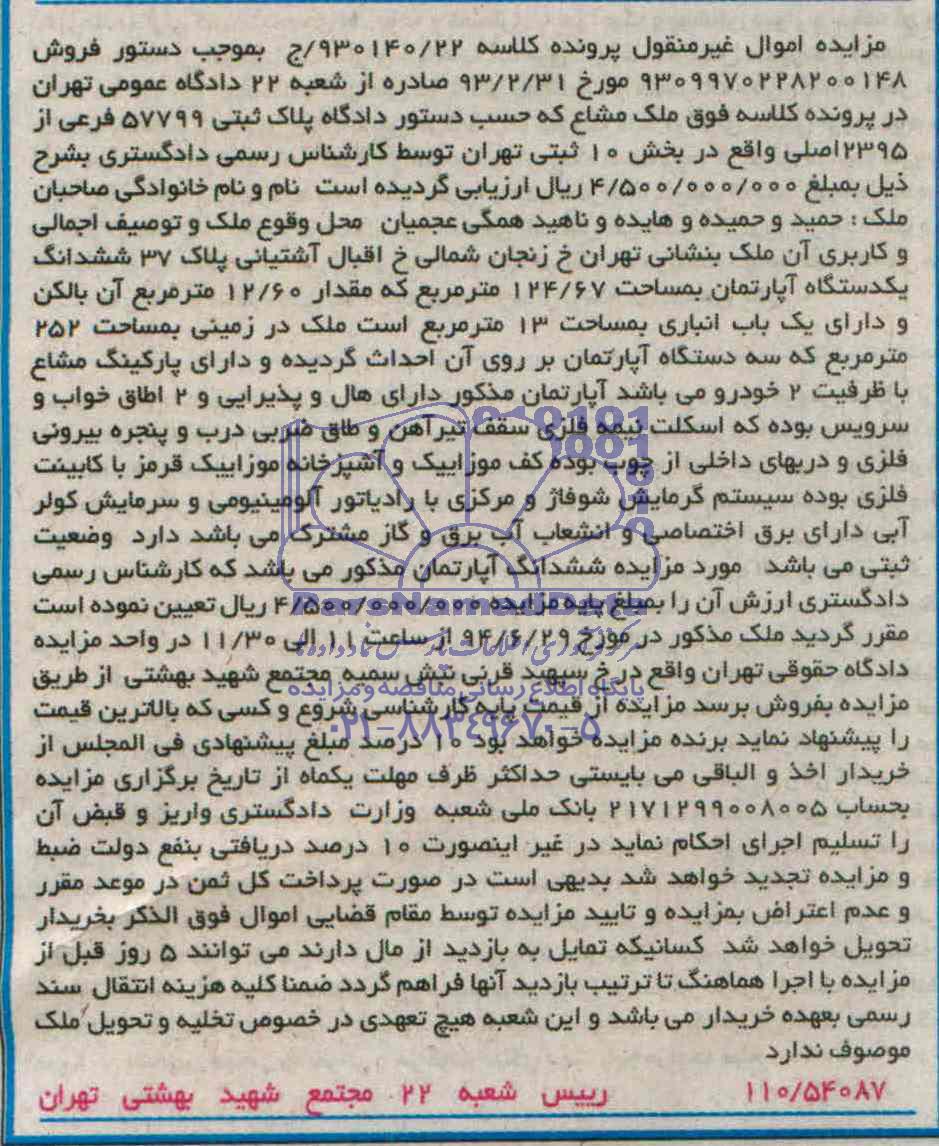 مزایده اموال غیرمنقول پرونده کلاسه ۹۳۰۱۴۰/۲۲/ج بموجب دستور فروش
۹۳۰۹۹۷۰۲۲۸۲۰۰۱۴۸ مورخ ۹۳/۲/۳۱ صادره از شعبه ۲۲ دادگاه عمومی تهران
در پرونده کلاسه فوق ملک مشاع که حسب دستور دادگاه پلاک ثبتی ۵۷۷۹۹ فرعی از
۲۳۹۵اصلی واقع در بخش ۱۰ ثبتی تهران توسط کارشناس رسمی دادگستری بشرح
ذیل بمبلغ ۴/۵۰۰/۰۰۰/۰۰۰ ریال ارزیابی گردیده است نام و نام خانوادگی صاحبان
ملک : حمید و حمیده و هایده و ناهید همگی عجمیان محل وقوع ملک و توصیف اجمالی
و کاربری آن ملک بنشانی تهران خ زنجان شمالی خ اقبال آشتیانی پلاک ۳۷ ششدانگ
یکدستگاه آپارتمان بمساحت ۱۲۴/۶۷ مترمربع که مقدار ۱۲/۶۰ مترمربع آن بالکن
و دارای یک باب انباری بمساحت ۱۳ مترمربع است ملک در زمینی بمساحت ۲۵۲
مترمربع که سه دستگاه آپارتمان بر روی آن احداث گردیده و دارای پارکینگ مشاع
با ظرفیت ۲ خودرو می باشد آپارتمان مذکور دارای هال و پذیرایی و ۲ اطاق خواب و
سرویس بوده که اسکلت نیمه فلزی سقف تیرآهن و طاق ضربی درب و پنجره بیرونی
فلزی و دربهای داخلی از چوب بوده کف موزاییک و آشپزخانه موزاییک قرمز با کابینت
فلزی بوده سیستم گرمایش شوفاژ و مرکزی با رادیاتور آلومینیومی و سرمایش کولر
آبی دارای برق اختصاصی و انشعاب آب برق و گاز مشترک می باشد دارد وضعیت
ثبتی می باشد مورد مزایده ششدانگ آپارتمان مذکور می باشد که کارشناس رسمی
دادگستری ارزش آن را بمبلغ پایه مزایده ۴/۵۰۰/۰۰۰/۰۰۰ ریال تعیین نموده است
مقرر گردید ملک مذکور در مورخ ۹۴/۶/۲۹ از ساعت ۱۱ الی ۱۱/۳۰ در واحد مزایده
دادگاه حقوقی تهران واقع در خ سپهبد قرنی نبش سمیه مجتمع شهید بهشتی از طریق
پایگاه اطلاع رسانی مناقصه و مزایده
مزایده بفروش برسد مزایده از قیمت پایه کارشناسی شروع و کسی که بالاترین قیمت
۰۲۱-۸۸۳۴۹۶۷۰-۵
را پیشنهاد نماید برنده مزایده خواهد بود ۱۰ درصد مبلغ پیشنهادی فی المجلس از
خریدار اخذ و الباقی می بایستی حداکثر ظرف مهلت یکماه از تاریخ برگزاری مزایده
بحساب ۲۱۷۱۲۹۹۰۰۸۰۰۵ بانک ملی شعبه وزارت دادگستری واریز و قبض آن
را تسلیم اجرای احکام نماید در غیر اینصورت ۱۰ درصد دریافتی بنفع دولت ضبط
و مزایده تجدید خواهد شد بدیهی است در صورت پرداخت کل ثمن در موعد مقرر
و عدم اعتراض بمزایده و تایید مزایده توسط مقام قضایی اموال فوق الذکر بخریدار
تحویل خواهد شد کسانیکه تمایل به بازدید از مال دارند می توانند ۵ روز قبل از
مزایده با اجرا هماهنگ تا ترتیب بازدید آنها فراهم گردد ضمنا کلیه هزینه انتقال سند
رسمی بعهده خریدار می باشد و این شعبه هیچ تعهدی در خصوص تخلیه و تحویل ملک
موصوف ندارد
۱۱۰/۵۴۰۸۷ رییس شعبه ۲۲ مجتمع شهید بهشتی تهران